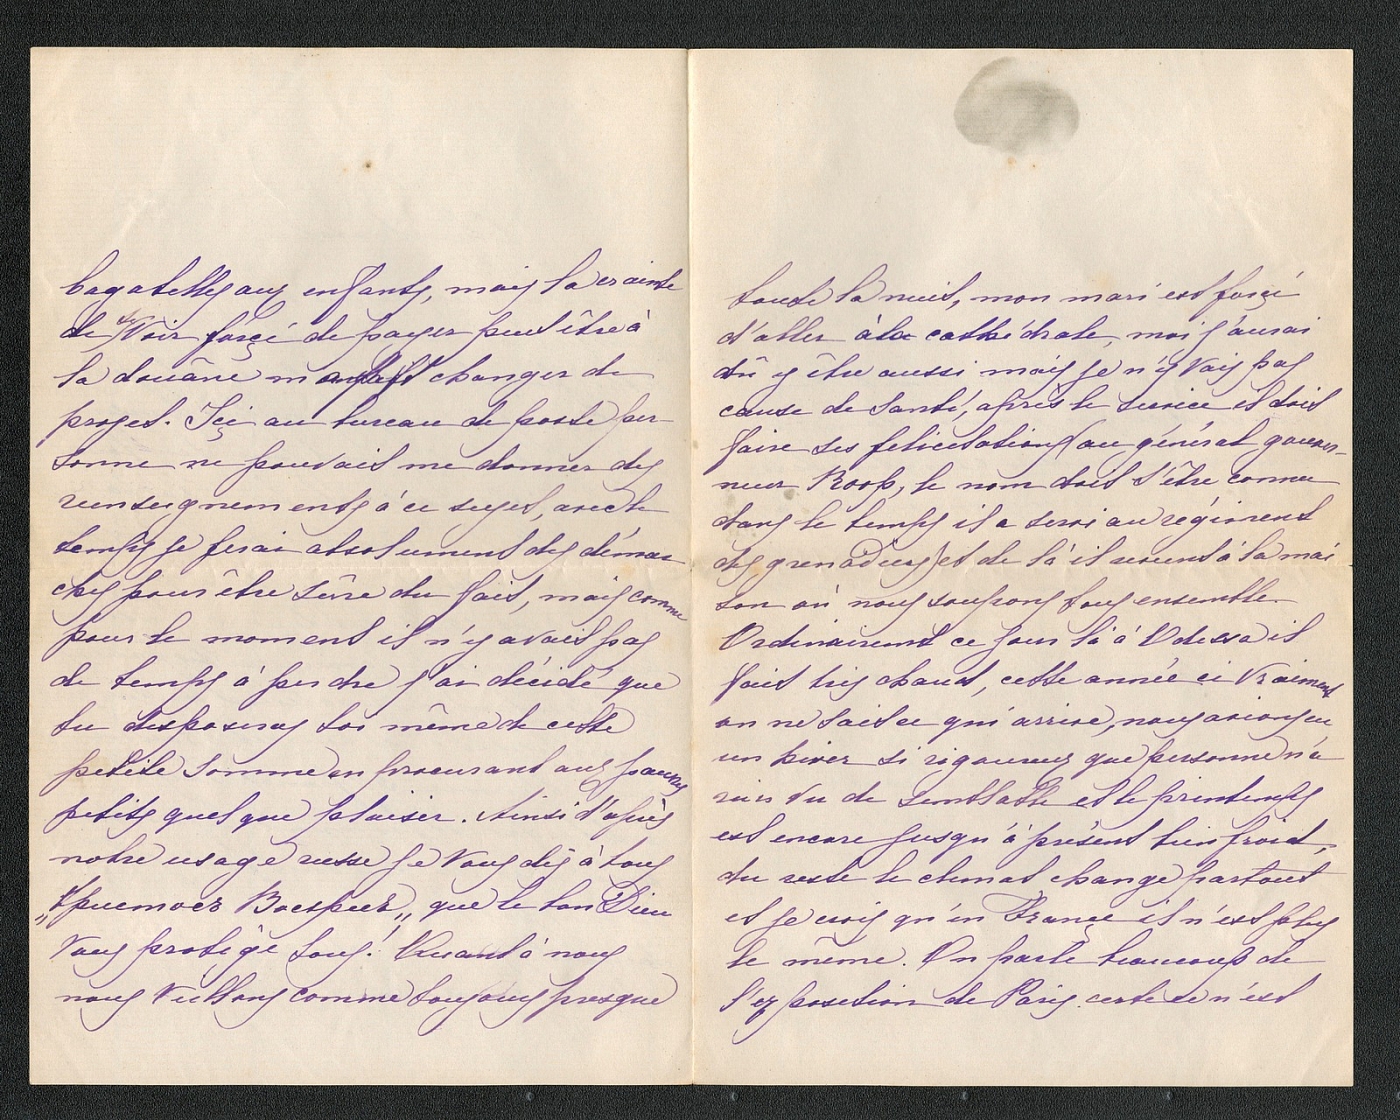 bagatelles aux enfants, mais la crainte
de te voir forçé de payer peut être à
la douâne m'a fait changer de
projet. Içi au bureau de poste per
sonne ne pouvait me donner des
renseignements à ce sujet, avec le
temps je ferai absolument des démar
ches pour être sûre du fait, mais comme
pour le moment il n'y avait pas
de temps à perdre j'ai décidé que
tu disposeras toi même de cette
petite somme en procurant aux pauvres
petits quelque plaisir. Ainsi d'après
notre usage russe je vous dis à tous
„Христосъ Воскресъ„ que le bon Dieu
vous protège tous! Quant à nous
nous veillons comme toujours presque
toute la nuit, mon mari est forçé
d'aller à la cathédrale, moi j'aurai
dû y être aussi mais je n'y vais pas
cause de santé, après le service il doit
faire ses felicitations (au général gouver-
neur Roop, le nom doit t'être connu
dans le temps il a servi au régiment
des grenadiers) et de là il revient à la mai
son où nous soupons tous ensemble.
Ordinairement ce jour là à Odessa il
fait très chaud, cette année ci vraiment
on ne sait ce qui arrive, nous avions eu
un hiver si rigoureux que personne n'a
rien vu de semblable et le printemps
est encore jusqu'à présent bien froid,
du reste le climat change partout
et je crois qu'en France il n'est plus
le même. On parle beaucoup de
l'exposition de Paris. certe ce n'est